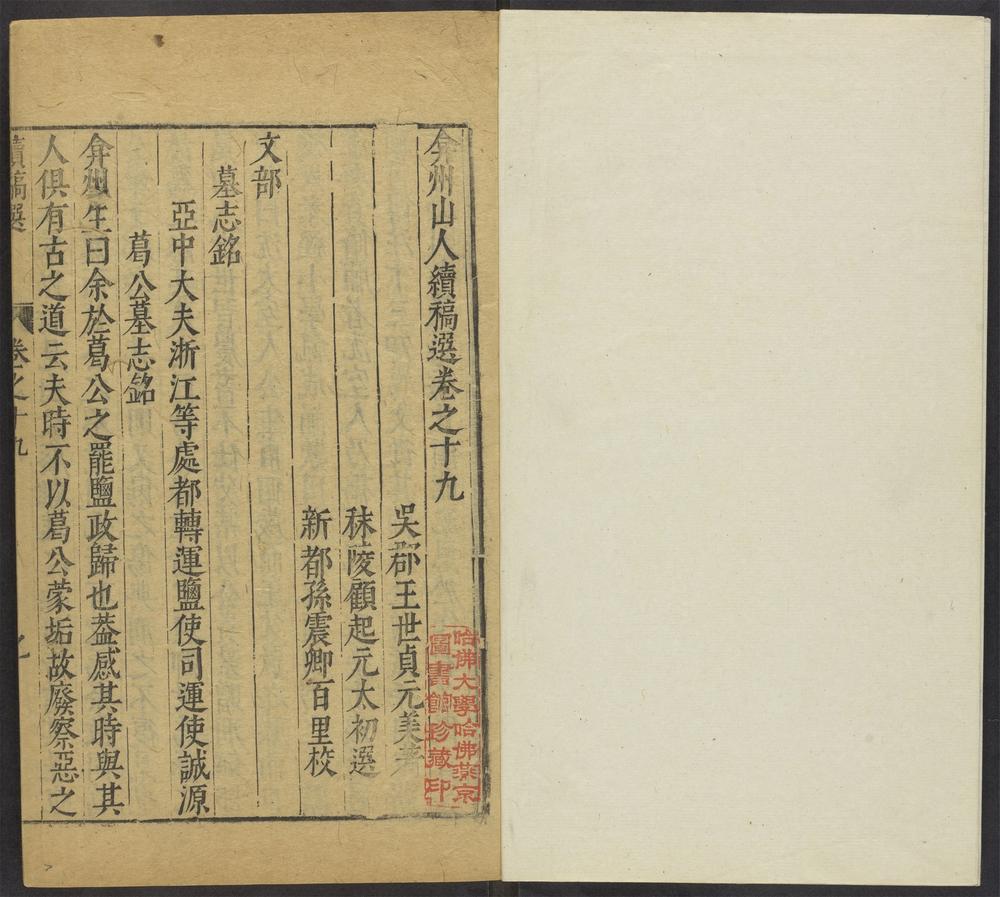 弇州山人續稿選卷之十九
吳郡王世貞元美著
秣陵顧起元太初選
新都孫震卿百里校
文部
墓志銘
亞中大夫浙江等處都轉運鹽使司運使誠源
葛公墓志銘
弇州生曰余於葛公之罷鹽政歸也葢感其時與其
人俱有古之道云夫時不以葛公蒙垢故廢察惡之
續稿選 卷之十九
哈佛大學哈佛燕京
圖書館珍藏印